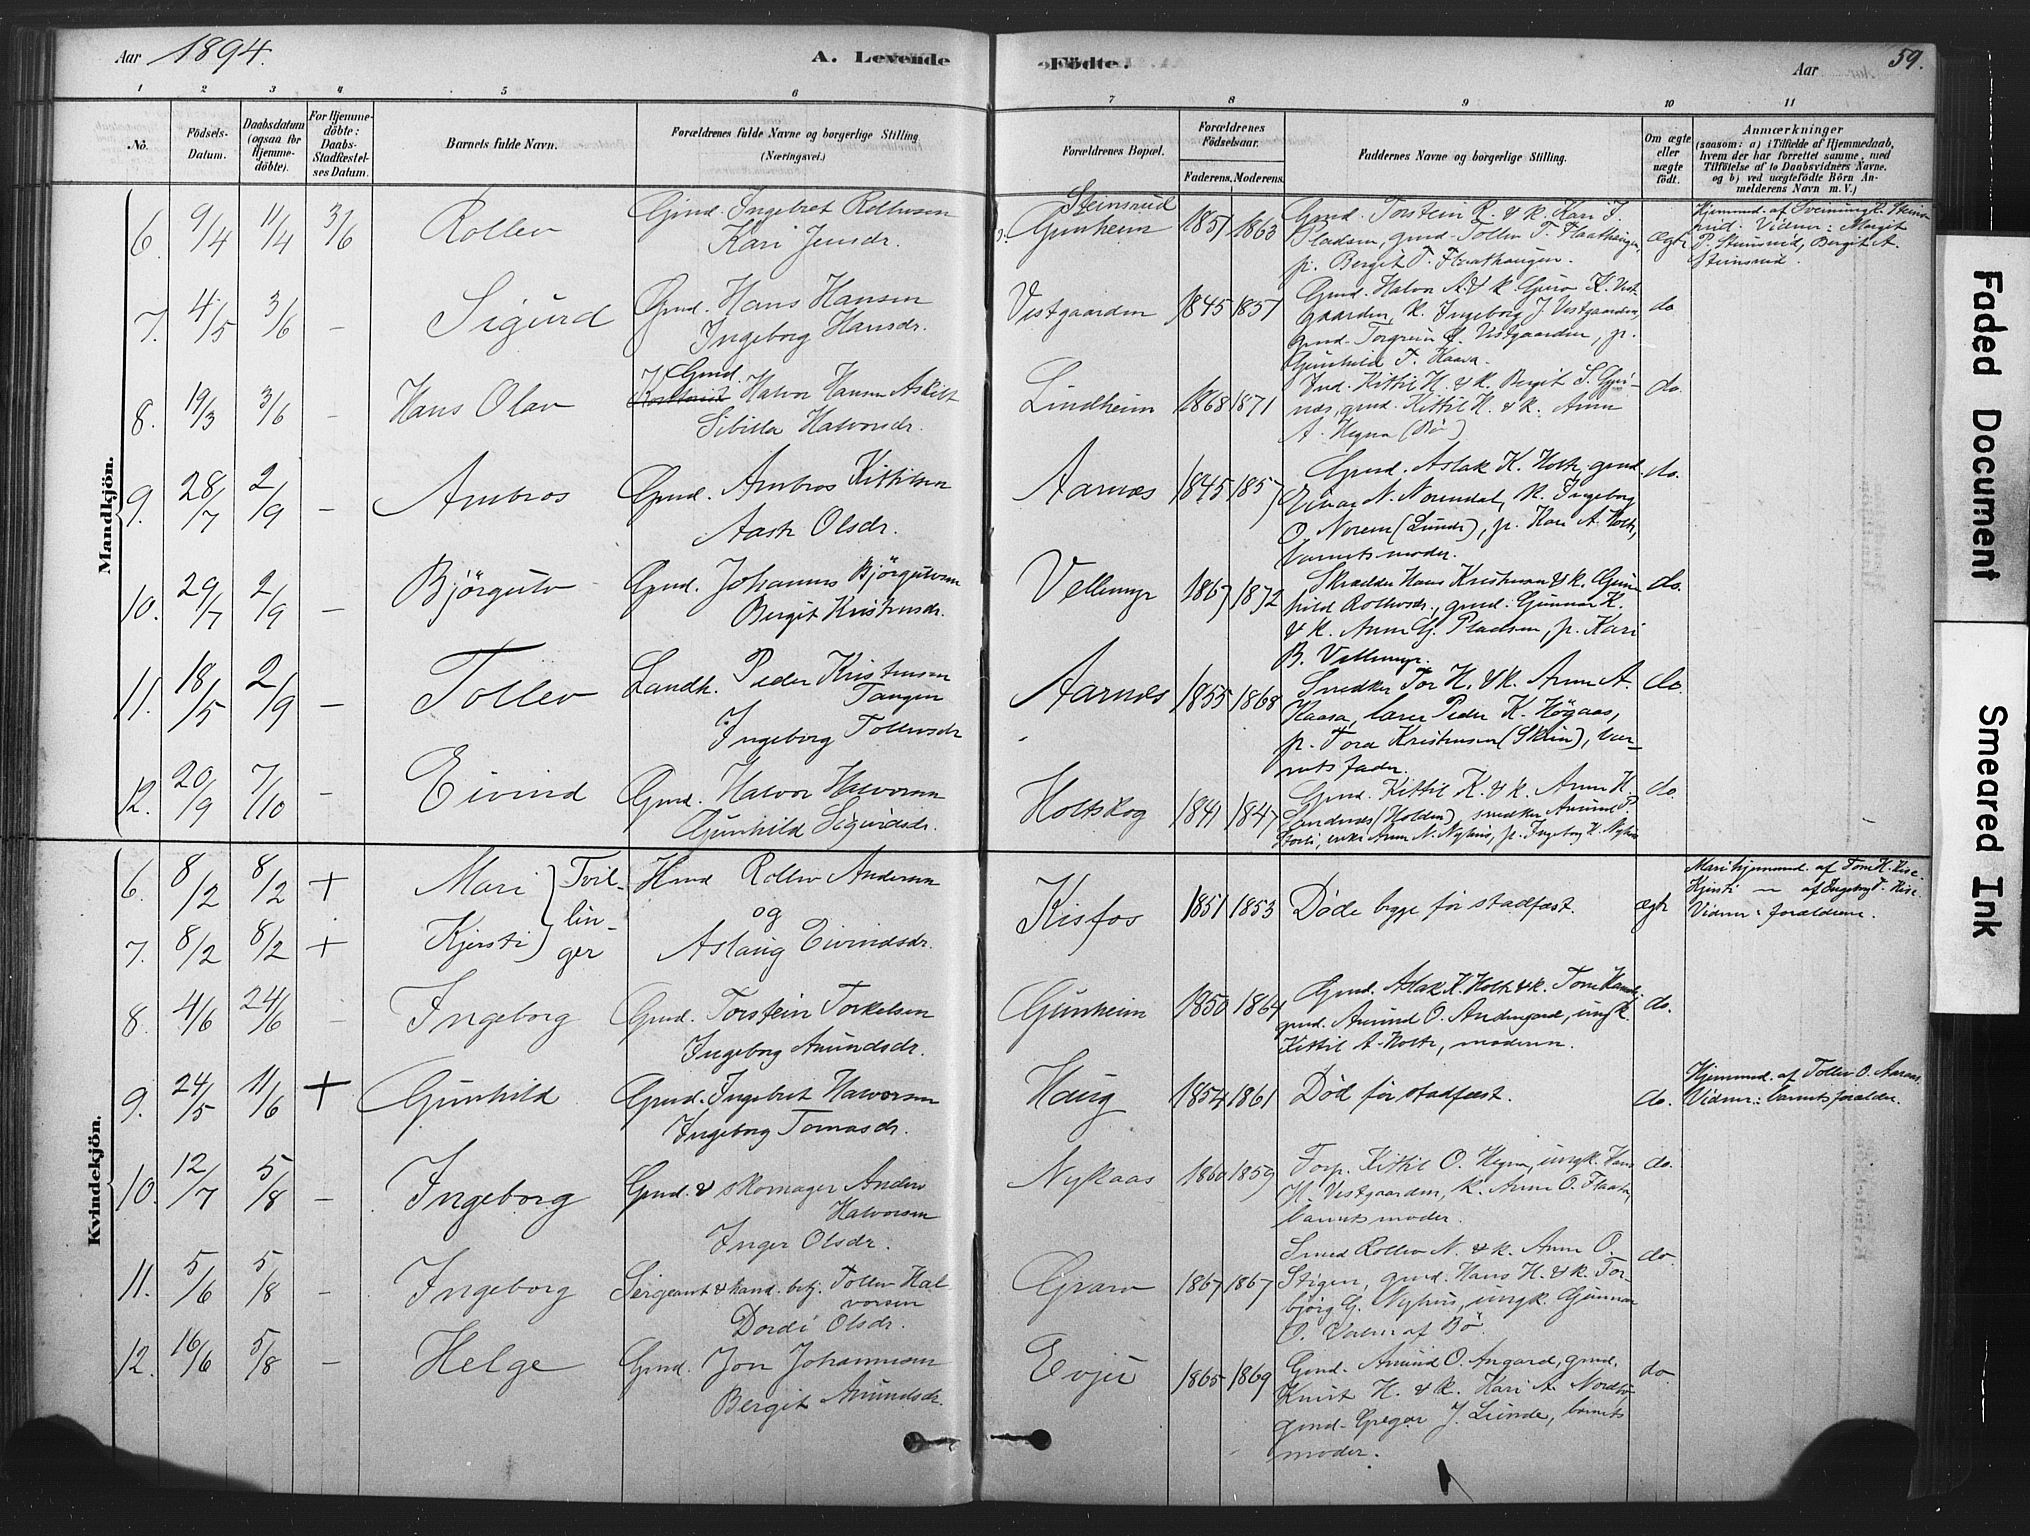 Aar 1894.
A. Levende
Födte.
Aar
59.
1 2 3 4 5 6 7 8 9 10 11
No.
Födsels-
Datum.
Daabsdatum
(ogsaa for
Hjemme-
döbte).
For Hjemme-
döbte:
Daabs-
Stadfæstel-
ses Datum.
Barnets fulde Navn.
Forældrenes fulde Navne og borgerlige Stilling
(Næringsvei.)
Forældrenes Bopæl.
Forældrenes
Födselsaar.
Faderens. Moderens.
Faddernes Navne og borgerlige Stilling.
Om ægte
eller
uægte
födt.
Anmærkninger
(saasom: a) i Tilfælde af Hjemmedaab,
hvem der har forrettet samme, med
Tilföielse af to Daabsvidners Navne.
og b) ved uægtefödte Börn An-
melderens Navn m. V.)
Mandkjön.
6. 9/4 11/4 3/6 Rollev
Gmd. Ingebret
Kari Jensdr.
Steinsrud
Gunheim 1857 1863
Gmd. Torstein R. & k. Kari J.
Pladsen, gmd. Tollev T. Flaathaugen
p. Bergit T. Flaathaugen.
Hjemmed. af Sveinung R. Steins-
rud. Vidner: Margit
P. Steinsrud, Bergit A.
Steinsrud.
7. 4/5 3/6 – Sigurd
Gmd. Hans Hansen
Ingeborg Hansdr.
Vestgaarden 1845 1857
Gmd. Halvor A. & k. Guro K. Vest-
gaarden, k. Ingeborg J. Vestgaarden,
gmd. Torgrim Vestgaarden, p.
Gunhild T. Haava. do
8. 19/3 3/6 – Hans Olav
Gmd.
Halvor Hansen
Sibilla Halvorsdr.
Lindheim 1868 1871
Ind. Kittil H. & k. Bergit S. Gri-
næs, gmd. Kittil H. & k. Anne
A. Hegna (Bø) do.
9. 28/7 2/9 – Ambros
Gmd. Ambros Kittilsen
Aaste Olsdr.
Aarnæs 1845 1857
Gmd. Aslak K. Holte, gmd.
Einar N. Norendal, k. Ingeborg
O. Norem (Lunde), p. Kari A. Holte,
barnets moder. do.
10. 29/7 2/9 – Björgulv
Gmd. Johannes Björgulvsen
Bergit Kristensdr.
Vellemyr 1867 1872
Skrædder Hans Kristensen & k. Gun-
hild Rollevsdr., gmd. Gunnar K.
& k. Anne G. Pladsen, p. Kari
B. Vellemyr. do.
11. 18/5 2/9 – Tollev
Landh. Peder Kristensen
Tangen
Ingeborg Tollevsdr
Aarnæs 1855 1868
Snedker Tor H. & k. Anne A.
Kaasa, lærer Peder K. Högaas,
p. Tora Kristensen (Skien), bar-
nets fader. do.
12. 20/9 7/10 – Eivind
Gmd. Halvor Halvorsen
Gunhild Sigurdsdr.
Holtskog 1841 1847
Gmd. Kittil K. & k. Anne H.
Sandenæs (Holden), snedker Amund P.
enke Anne N. Nyhus, p. Ingeborg H. Nyhus do.
Kvindekjön.
6. 8/2 8/2 + Mari
7. 8/2 8/2 + Kjersti
Tvil-
lin-
ger
Hmd Rollev Andersen
og
Aslaug Eivindsdr.
Kisfos 1851 1853
Døde begge før stadfæst. ægte
Mari hjemmed. af Tone K. Kise.
Kjersti — af Ingeborg T. Kise
Vidner: forældrene.
8. 4/6 24/6 – Ingeborg
Gmd. Torstein Torkelsen
Ingeborg Amundsdr.
Gunheim 1850 1864
Gmd. Aslak K. Holte & k. Tone
gmd. Amund O. Andergard, ungk.
Kittil A. Holte, moderen. do.
9. 24/5 11/6 + Gunhild
Gmd. Ingebret Halvorsen
Ingeborg Tomasdr.
Haug 1854 1861
Død før stadfæst. do.
Hjemmed. af Tollev O. Aaraas.
Vidner: barnets forældre.
10. 12/7 5/8 – Ingeborg
Gmd. & skomager Anders
Halvorsen
Inger Olsdr.
Nykaas 1860 1859
Forp. Kittil O. Hegna, ungk. Hans
H. Vestgaarden, k. Anne O. Flaata,
barnets moder. do.
11. 5/6 5/8 – Ingeborg
Sergeant & hand. betj. Tollev Hal-
vorsen
Dordi Olsdr.
Grave 1867 1867
Smed Rollev N. & k. Anne O.
Stigen, gmd. Hans H. & k. Tor-
bjørg G. Nyhus, ungk. Gunnar
O. Valen af Bø. do.
12. 16/6 5/8 – Helge
Gmd. Jon Johannesen
Bergit Amundsdr.
Evju 1865 1869
Gmd. Amund O. Angard, gmd.
Knut H. & k. Kari A. Nordbø,
gmd. Gregar J. Lunde, barnets
moder. do.
Faded Document
Smeared Ink